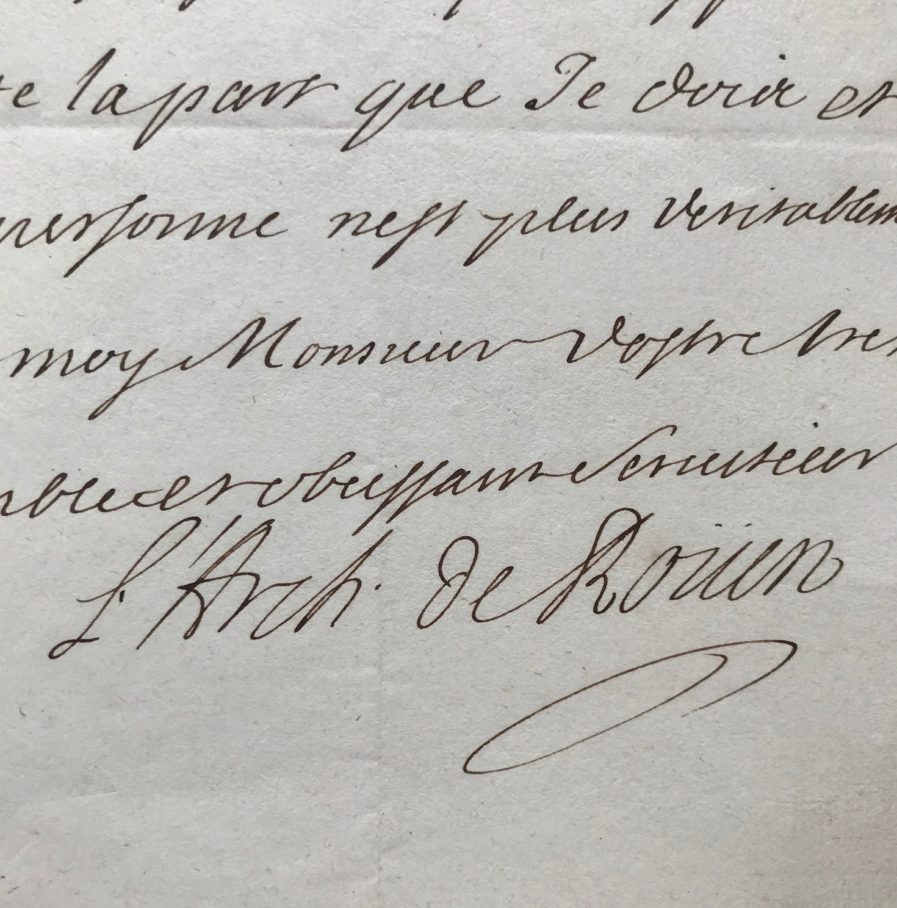 la part que Je dois et
personne nest plus veritablem
moy Monsieur Vostre tres
ble et obeissant Seruiteur
L'Arch. de Roüen